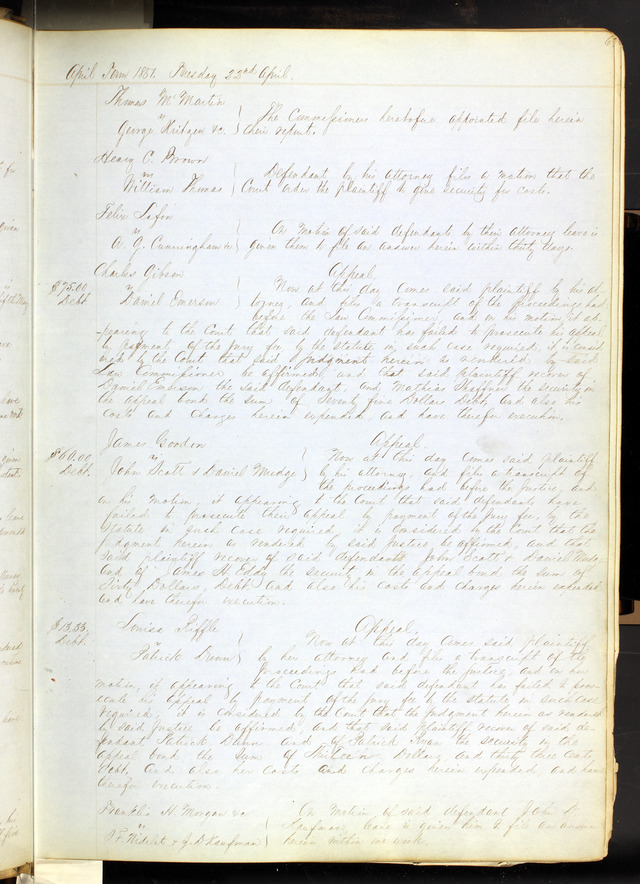 April Term 1851. Tuesday 22nd April.
Thomas McMartin
vs
George Kridgen &c. } The Commissioners heretofore appointed file herein
their report.
Henry C. Brown
vs
William Thomas } Defendant by his attorney files a motion that the
Court order the plaintiff to give security for costs.
Felix Lafon
vs
A. J. Cunningham &c } On motion of said defendants by their attorney leave is
given them to file an answer herein within thirty days.
Charles Gibson Appeal
$75.00 Debt. vs
Daniel Emerson } Now at this day comes said plaintiff by his at-
torney, and files a transcript of the proceedings had
before the Law Commissioner, and on his motion, it ap-
-pearing to the Court that said defendant has failed to prosecute his appeal
by payment of the jury fee by the statute in such case required, it is consid-
ered by the Court that said judgment herein as rendered by said
Law Commissioner be affirmed, and that said plaintiff recover of
Daniel Emerson the said defendant, and Mathias the security in
the appeal bond the sum of Seventy five Dollars Debt, and also his
costs and charges herein expended, and have therefor execution.
James Gordon Appeal
$60.00 Debt. vs
John Scott & Daniel Mudge } Now at this day comes said plaintiff
by his attorney, and files a transcript of
the proceedings had before the Justice, and
on his motion, it appearing to the Court that said defendants have
failed to prosecute their appeal by payment of the jury fee by the
statute in such case required, it is considered by the Court that the
judgment herein as rendered by said Justice be affirmed, and that
said plaintiff recover of said defendants John Scott & Daniel Mudge,
and of James H. Eddy the security in the appeal bond the sum of
Sixty Dollars, Debt and also his costs and charges herein expended
and have therefor execution.
Louisa Riffle Appeal
$13.33 Debt. vs
Patrick Dunn } Now at this day comes said plaintiff
by her attorney and files a transcript of the
proceedings had before the Justice, and on her
motion, it appearing to the Court that said defendant has failed to pros-
ecute his appeal by payment of the jury fee by the statute in such case
required, it is considered by the Court that the judgment herein as rendered
by said Justice be affirmed, and that said plaintiff recover of said de-
fendant Patrick Dunn and of Patrick the security in the
appeal bond the sum of Thirteen Dollars and thirty three cents
Debt, and also her costs and charges herein expended, and have
therefor execution.
Franklin H. Morgan &c
vs
& J. D. Kaufman } On motion of said defendant John D.
Kaufman, leave is given him to file an answer
herein within one week.